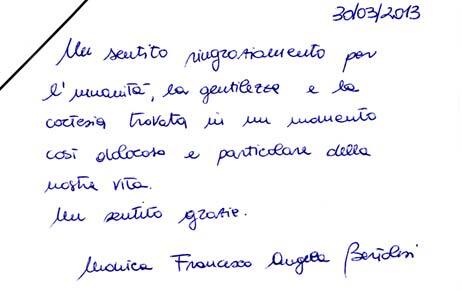 30/03/2013
Un sentito ringraziamento per
l'umanità, la gentilezza e la
cortesia trovata in un momento
così doloroso e particolare della
nostra vita.
Un sentito grazie.
Monica Francesco Angela